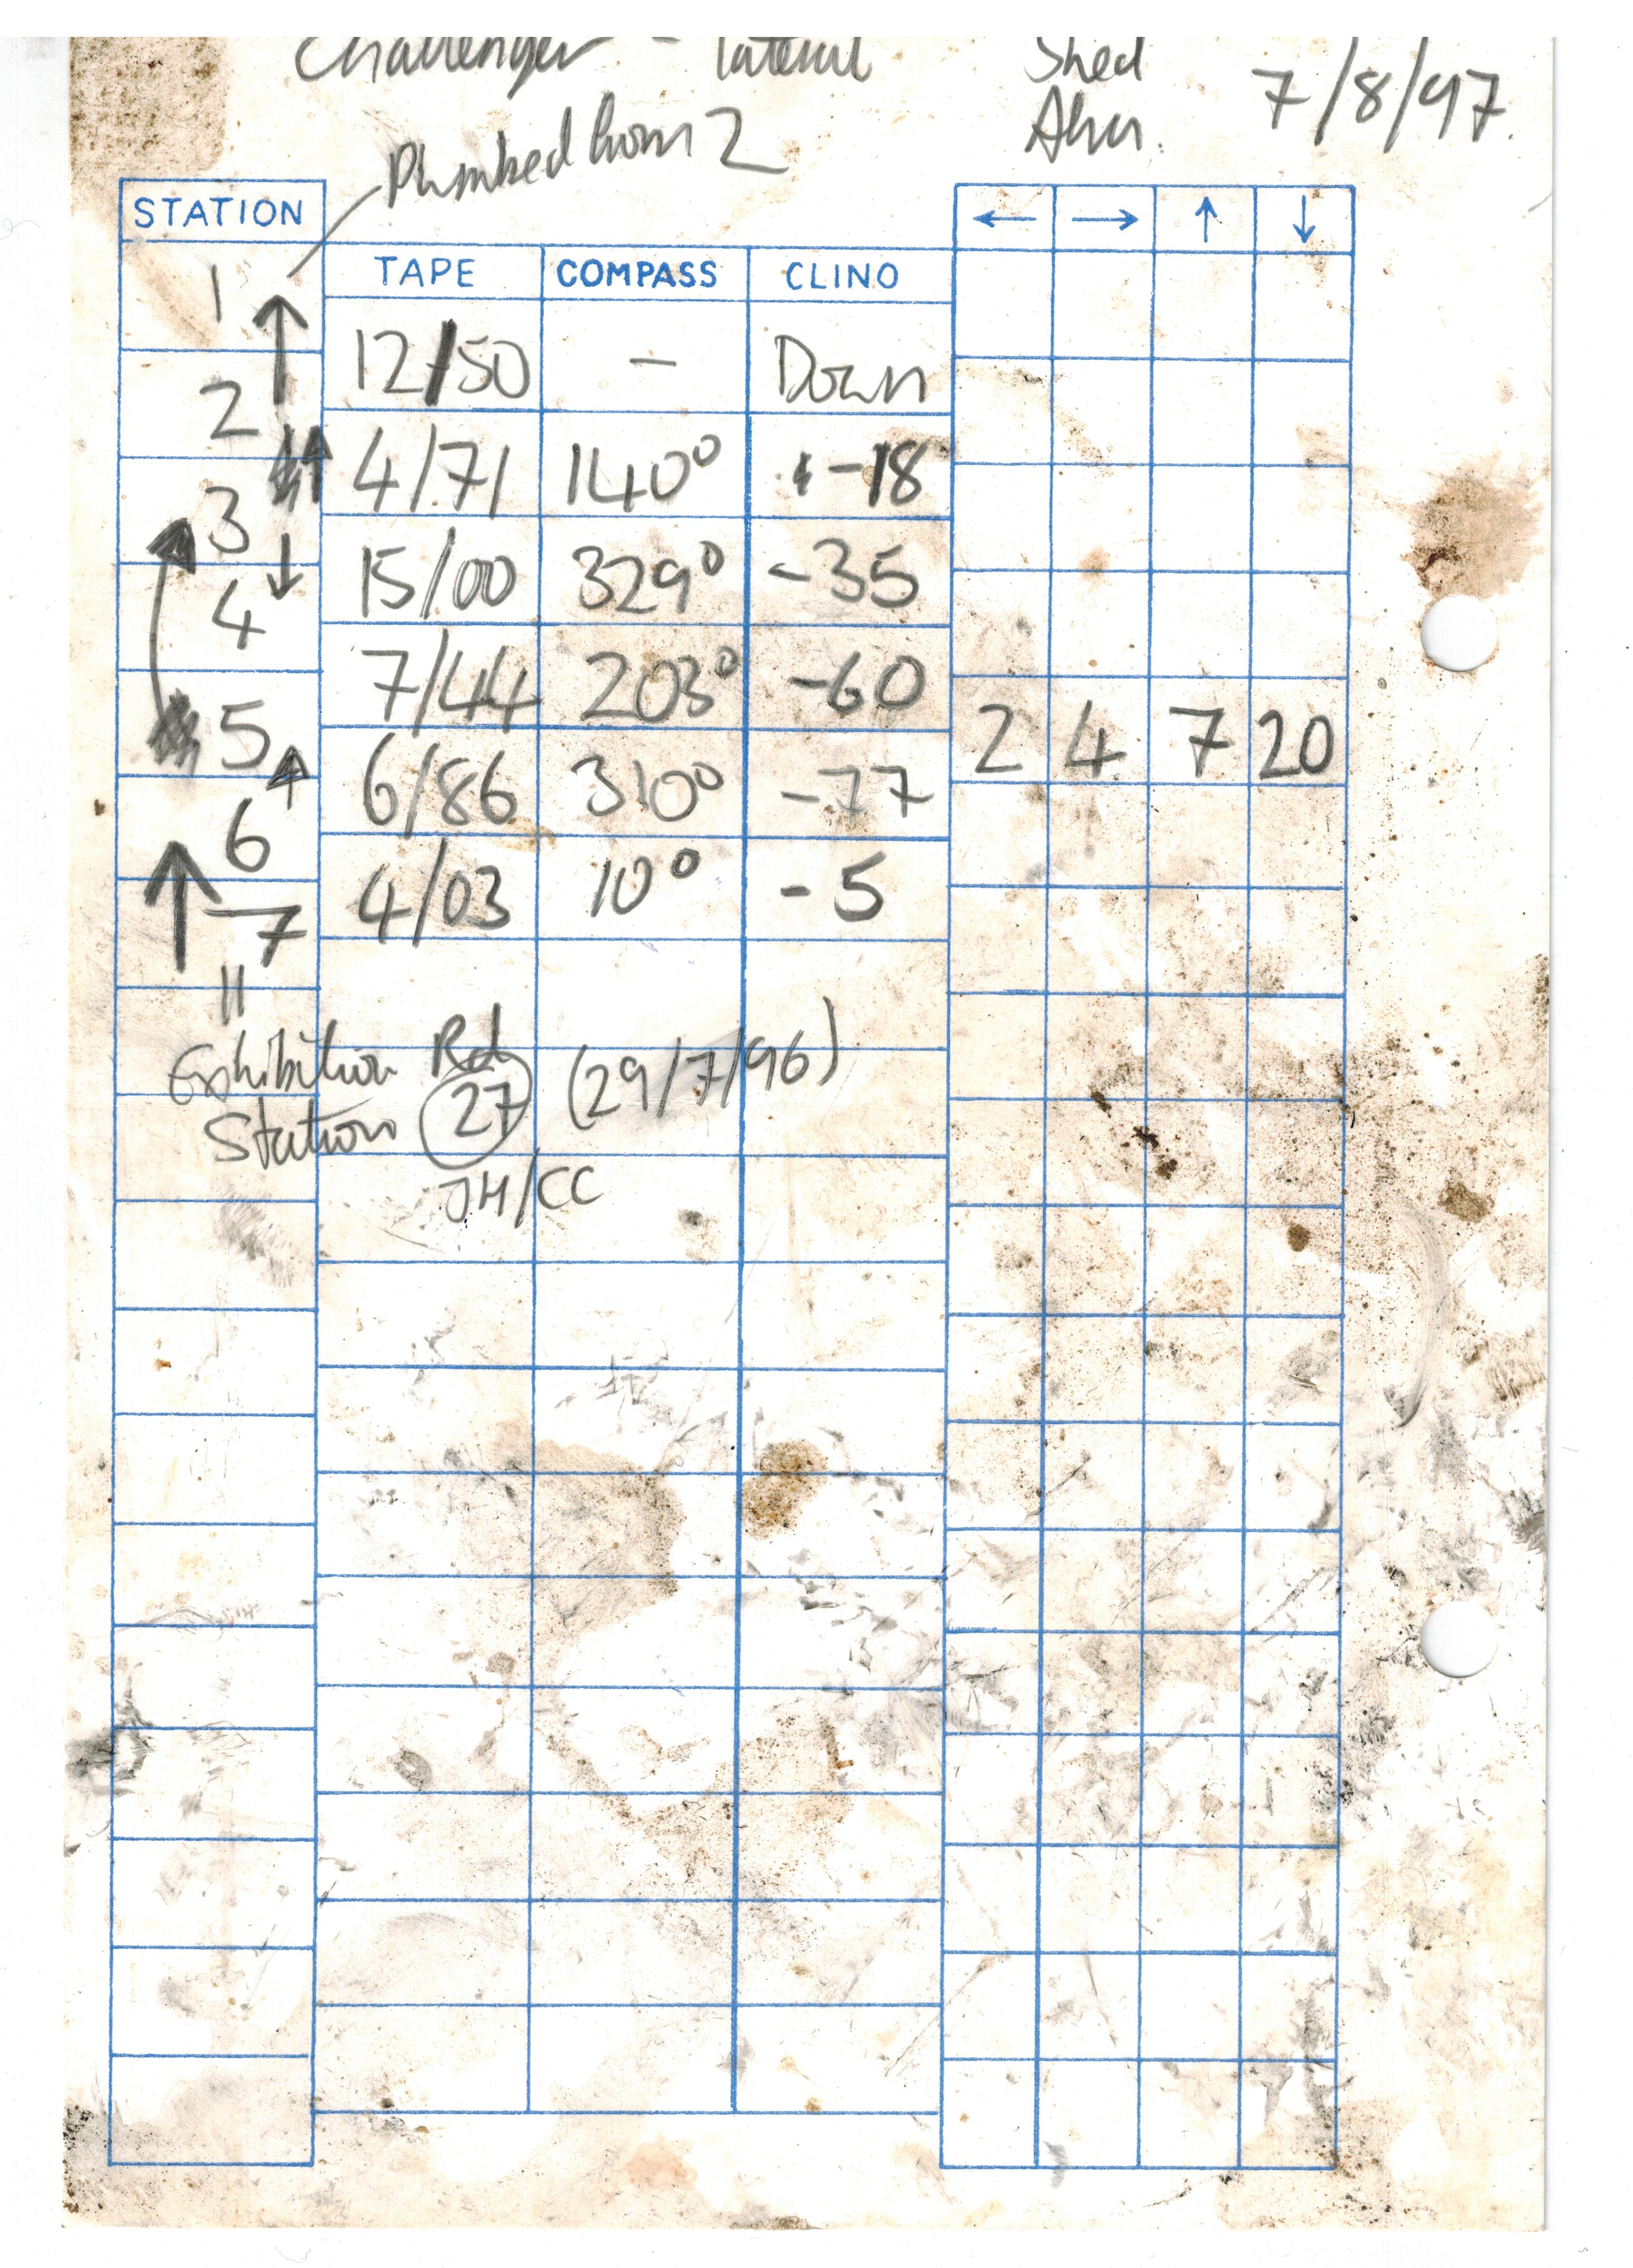 Challenger - lateral Shed 7/8/97.
Plumbed from 2
STATION ← → ↑ ↓
TAPE COMPASS CLINO
1
12/50 - Down
2
4/71 140° -18
3
15/00 329° -35
4
7/44 203° -60
5 2 4 7 20
6/86 310° -77
6
4/03 10° -5
7
"
Exhibition Rd
Station 27 (29/7/96)
JH/CC